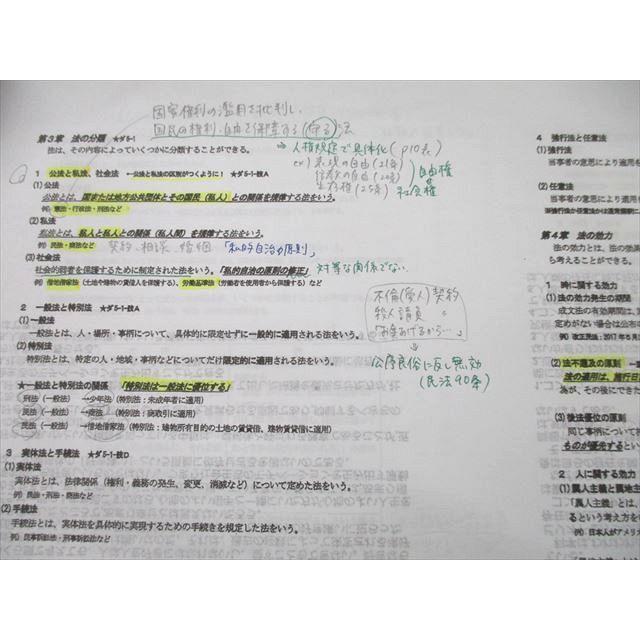 国家権利の濫用を批判し、
国民の権利・自由を保障する(守る)法
第3章 法の分類 ★ダ5-1
法は、その内容によっていくつかに分類することができる。
⇒人権規定で具体化(p10表)
ex) 表現の自由(21条)
(20条)
生存権(25条)
自由権
社会権
1 公法と私法、社会法 -公法と私法の区別がつくように! ★ダ5-1-枝A
(1)公法
公法とは、国または地方公共団体とその国民(私人)との関係を規律する法をいう。
例)憲法・行政法・刑法など
(2)私法
私法とは、私人と私人との関係(私人間)を規律する法をいう。
例)民法・商法など 契約、相続、婚姻 「私的自治の原則」
(3)社会法
社会的弱者を保護するために制定された法をいう。「私的自治の原則の修正」 対等な関係でない
例)借地借家法(土地や建物の賃借人を保護する)、労働基準法(労働者を使用者から保護する)など
不倫(愛人)契約
殺人請負
「お金あげるから…」
公序良俗に反し無効
(民法90条)
2 一般法と特別法 ★ダ5-1-枝A
(1)一般法
一般法とは、人・場所・事柄について、具体的に限定せずに一般的に適用される法をいう。
(2)特別法
特別法とは、特定の人・地域・事柄などについてだけ限定的に適用される法をいう。
★一般法と特別法の関係 「特別法は一般法に優位する」
刑法(一般法) →少年法(特別法:未成年者に適用)
民法(一般法) →商法(特別法:商取引に適用)
民法(一般法) →借地借家法(特別法:建物所有目的の土地の賃貸借、建物賃貸借に適用)
3 実体法と手続法 ★ダ5-1-枝D
(1)実体法
実体法とは、法律関係(権利・義務の発生、変更、消滅など)について定めた法をいう。
例)民法・刑法・商法など
(2)手続法
手続法とは、実体法を具体的に実現するための手続きを規定した法をいう。
例)民事訴訟法・刑事訴訟法など
4 強行法と任意法
(1)強行法
当事者の意思により適用を
(2)任意法
当事者の意思により適用
※強行法か任意法かは
第4章 法の効力
法の効力とは、法の
ち考えることができる。
1 時に関する効力
(1)法の効力発生の期間
成文法の有効期間は、
定めがない場合は公布
例)改正民法:2017年5月
(2)法不遡及の原則
法の適用は、施行日
が、その後にできた
(3)後法優位の原則
同じ事柄について
ものが優先すると
2 人に関する効力
(1)属人主義と属地主
「属人主義」とは、
るという考え方を
例)日本人がアメリカ